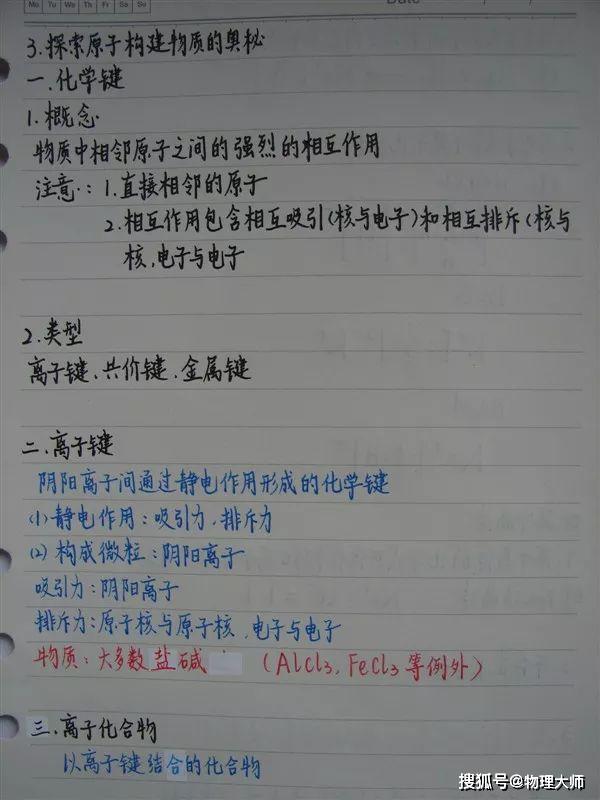 Mo Tu We Th Fr Sa Su
Date / /
3.探索原子构建物质的奥秘
一.化学键
1.概念.
物质中相邻原子之间的强烈的相互作用
注意:1.直接相邻的原子
2.相互作用包含相互吸引(核与电子)和相互排斥(核与
核,电子与电子
2.类型
离子键、共价键.金属键
二.离子键
阴阳离子间通过静电作用形成的化学键
(1)静电作用:吸引力.排斥力
(2)构成微粒:阴阳离子
吸引力:阴阳离子
排斥力:原子核与原子核,电子与电子
物质:大多数盐碱 (AlCl3,FeCl3等例外)
三.离子化合物
以离子键结合的化合物
搜狐号@物理大师